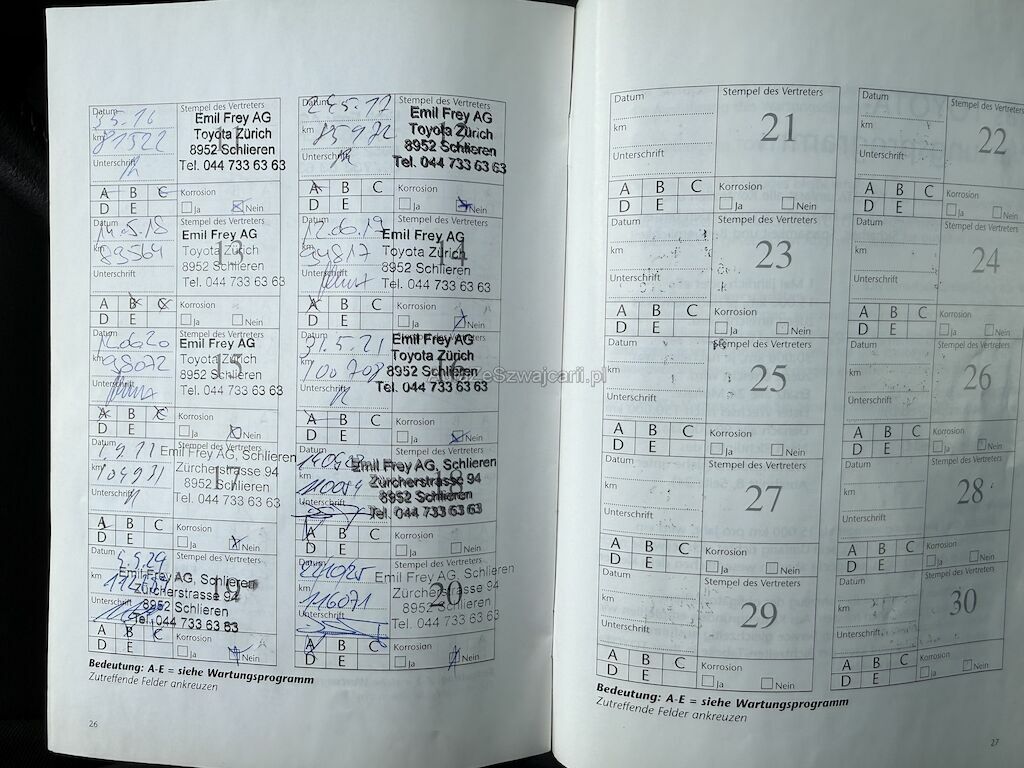 Datum
Stempel des Vertreters
3.5.16
Emil Frey AG
km
81522
Toyota Zürich
8952 Schlieren
Unterschrift
Tel. 044 733 63 63
A B C
Korrosion
D E
Ja Nein
Datum
Stempel des Vertreters
Emil Frey AG
km
85972
Toyota Zürich
8952 Schlieren
Unterschrift
Tel. 044 733 63 63
A B C
Korrosion
D E
Ja Nein
Datum
Stempel des Vertreters
14.5.18
Emil Frey AG
km
89564
Toyota Zürich
13
8952 Schlieren
Unterschrift
Tel. 044 733 63 63
A B C
Korrosion
D E
Ja Nein
Datum
Stempel des Vertreters
12.06.19
Emil Frey AG
km
Toyota Zürich
14
8952 Schlieren
Unterschrift
Tel. 044 733 63 63
A B C
Korrosion
D E
Ja Nein
Datum
Stempel des Vertreters
Emil Frey AG
km
98072
Toyota Zürich
15
8952 Schlieren
Unterschrift
Tel. 044 733 63 63
A B C
Korrosion
D E
Ja Nein
Datum
Stempel des Vertreters
31.5.21
Emil Frey AG
km
100708
Toyota Zürich
8952 Schlieren
Unterschrift
Tel. 044 733 63 63
A B C
Korrosion
D E
Ja Nein
Datum
Stempel des Vertreters
Emil Frey AG, Schlieren
km
104931
Zürcherstrasse 94
17
8952 Schlieren
Unterschrift
Tel. 044 733 63 63
A B C
Korrosion
D E
Ja Nein
Datum
Stempel des Vertreters
Emil Frey AG, Schlieren
km
110054
Zürcherstrasse 94
18
8952 Schlieren
Unterschrift
Tel. 044 733 63 63
A B C
Korrosion
D E
Ja Nein
Datum
Stempel des Vertreters
Emil Frey AG, Schlieren
km
Zürcherstrasse 94
19
8952 Schlieren
Unterschrift
Tel. 044 733 63 63
A B C
Korrosion
D E
Ja Nein
Datum
Stempel des Vertreters
Emil Frey AG, Schlieren
km
116071
Zürcherstrasse 94
20
8952 Schlieren
Unterschrift
Tel. 044 733 63 63
A B C
Korrosion
D E
Ja Nein
Bedeutung: A-E = siehe Wartungsprogramm
Zutreffende Felder ankreuzen
26
Datum
Stempel des Vertreters
21
km
Unterschrift
A B C
Korrosion
D E
Ja Nein
Datum
Stempel des Vertreters
22
km
Unterschrift
A B C
Korrosion
D E
Ja Nein
Datum
Stempel des Vertreters
23
km
Unterschrift
A B C
Korrosion
D E
Ja Nein
Datum
Stempel des Vertreters
24
km
Unterschrift
A B C
Korrosion
D E
Ja Nein
Datum
Stempel des Vertreters
25
km
Unterschrift
A B C
Korrosion
D E
Ja Nein
Datum
Stempel des Vertreters
26
km
Unterschrift
A B C
Korrosion
D E
Ja Nein
Datum
Stempel des Vertreters
27
km
Unterschrift
A B C
Korrosion
D E
Ja Nein
Datum
Stempel des Vertreters
28
km
Unterschrift
A B C
Korrosion
D E
Ja Nein
Datum
Stempel des Vertreters
29
km
Unterschrift
A B C
Korrosion
D E
Ja Nein
Datum
Stempel des Vertreters
30
km
Unterschrift
A B C
Korrosion
D E
Ja Nein
Bedeutung: A-E = siehe Wartungsprogramm
Zutreffende Felder ankreuzen
27